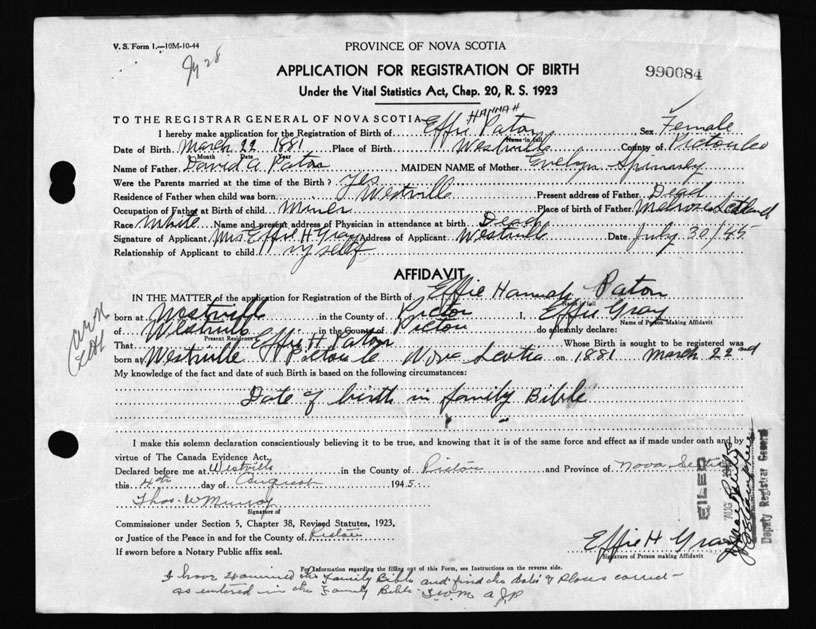 V. S. Form 1.—10M-10-44
PROVINCE OF NOVA SCOTIA
APPLICATION FOR REGISTRATION OF BIRTH
990084
Under the Vital Statistics Act, Chap. 20, R. S. 1923
TO THE REGISTRAR GENERAL OF NOVA SCOTIA
HANNAH
I hereby make application for the Registration of Birth of Effie Paton Sex Female
Name in full
Date of Birth March 22 1881 Place of Birth Westville County of Pictou Co
Month Date Year
Name of Father David A Paton MAIDEN NAME of Mother Evelyn
Were the Parents married at the time of the Birth? Yes
Residence of Father when child was born Westville Present address of Father Dead
Occupation of Father at Birth of child Miner Place of birth of Father Scotland
Race White Name and present address of Physician in attendance at birth Dead
Signature of Applicant Mrs Effie H Gray Address of Applicant Westville Date July 30/45
Relationship of Applicant to child Myself
AFFIDAVIT
IN THE MATTER of the application for Registration of the Birth of Effie Hannah Paton
Name in full
born at Westville in the County of Pictou I, Effie Gray
Name of Person Making Affidavit
of Westville in the County of Pictou do solemnly declare:
Present Residence
That Effie H Paton Whose Birth is sought to be registered was
born at Westville Pictou Co Nova Scotia on 1881 March 22nd
My knowledge of the fact and date of such Birth is based on the following circumstances:
Date of birth in family Bible
I make this solemn declaration conscientiously believing it to be true, and knowing that it is of the same force and effect as if made under oath and by
virtue of The Canada Evidence Act.
Declared before me at Westville in the County of Pictou and Province of Nova Scotia
this 4th day of August 1945
Thos. W Murray
Signature of
Commissioner under Section 5, Chapter 38, Revised Statutes, 1923,
or Justice of the Peace in and for the County of Pictou
If sworn before a Notary Public affix seal.
Effie H Gray
Signature of Person making Affidavit
FILED
AUG
Deputy Registrar General
For information regarding the filling out of this Form, see Instructions on the reverse side.
I have examined the Family Bible and find the date & place correct
as entered in the Family Bible T.W.M a J.P